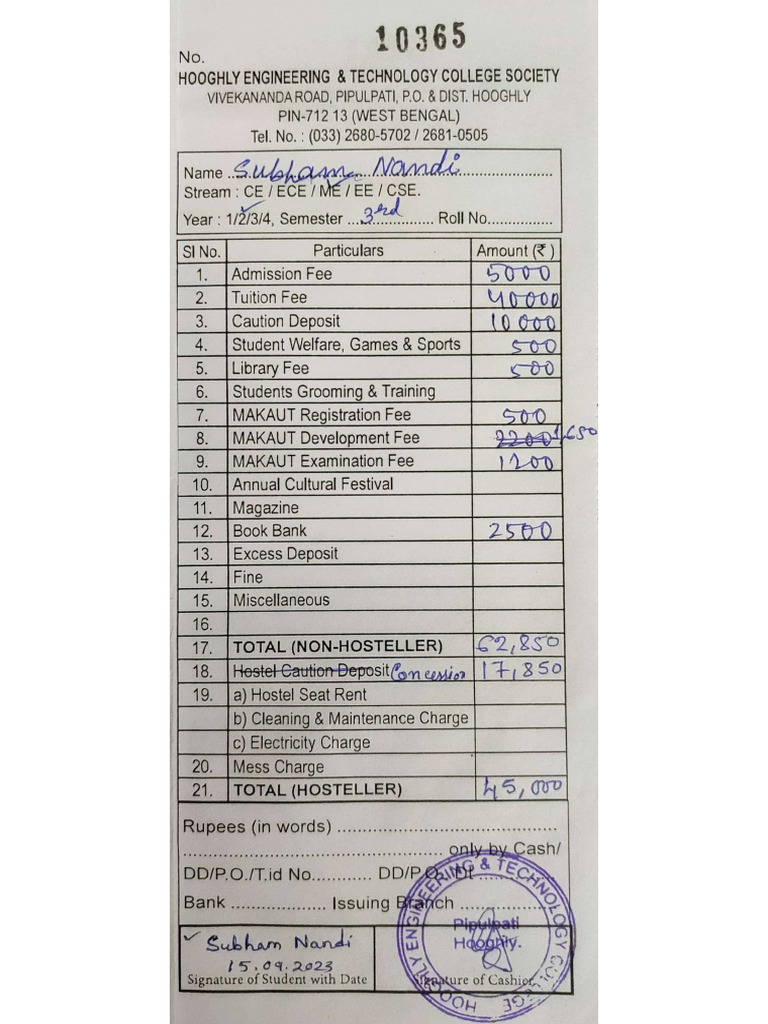 10365
No.
HOOGHLY ENGINEERING & TECHNOLOGY COLLEGE SOCIETY
VIVEKANANDA ROAD, PIPULPATI, P.O. & DIST. HOOGHLY
PIN-712 13 (WEST BENGAL)
Tel. No. : (033) 2680-5702 / 2681-0505
Name ...Subham Nandi...
Stream : CE / ECE / ME / EE / CSE.
Year : 1/2/3/4, Semester ...3rd... Roll No................
Sl No. Particulars Amount (₹ )
1. Admission Fee 5000
2. Tuition Fee 40000
3. Caution Deposit 10000
4. Student Welfare, Games & Sports 500
5. Library Fee 500
6. Students Grooming & Training
7. MAKAUT Registration Fee 500
8. MAKAUT Development Fee 2200 1,650
9. MAKAUT Examination Fee 1200
10. Annual Cultural Festival
11. Magazine
12. Book Bank 2500
13. Excess Deposit
14. Fine
15. Miscellaneous
16.
17. TOTAL (NON-HOSTELLER) 62,850
18. Hostel Caution Deposit Concession 17,850
19. a) Hostel Seat Rent
b) Cleaning & Maintenance Charge
c) Electricity Charge
20. Mess Charge
21. TOTAL (HOSTELLER) 45,000
Rupees (in words) ..........................................
................................................ only by Cash/
DD/P.O./T.id No............ DD/P.O. Dt ..............
Bank ................... Issuing Branch ...................
HOOGHLY ENGINEERING & TECHNOLOGY COLLEGE
Pipulpati
Hooghly.
Subham Nandi
15.09.2023
Signature of Student with Date Signature of Cashier